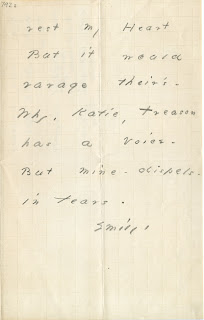 rest my Heart
But it would
ravage theirs.
Why, Katie, Treason
has a Voice -
But mine - dispels -
in tears.
Emily,